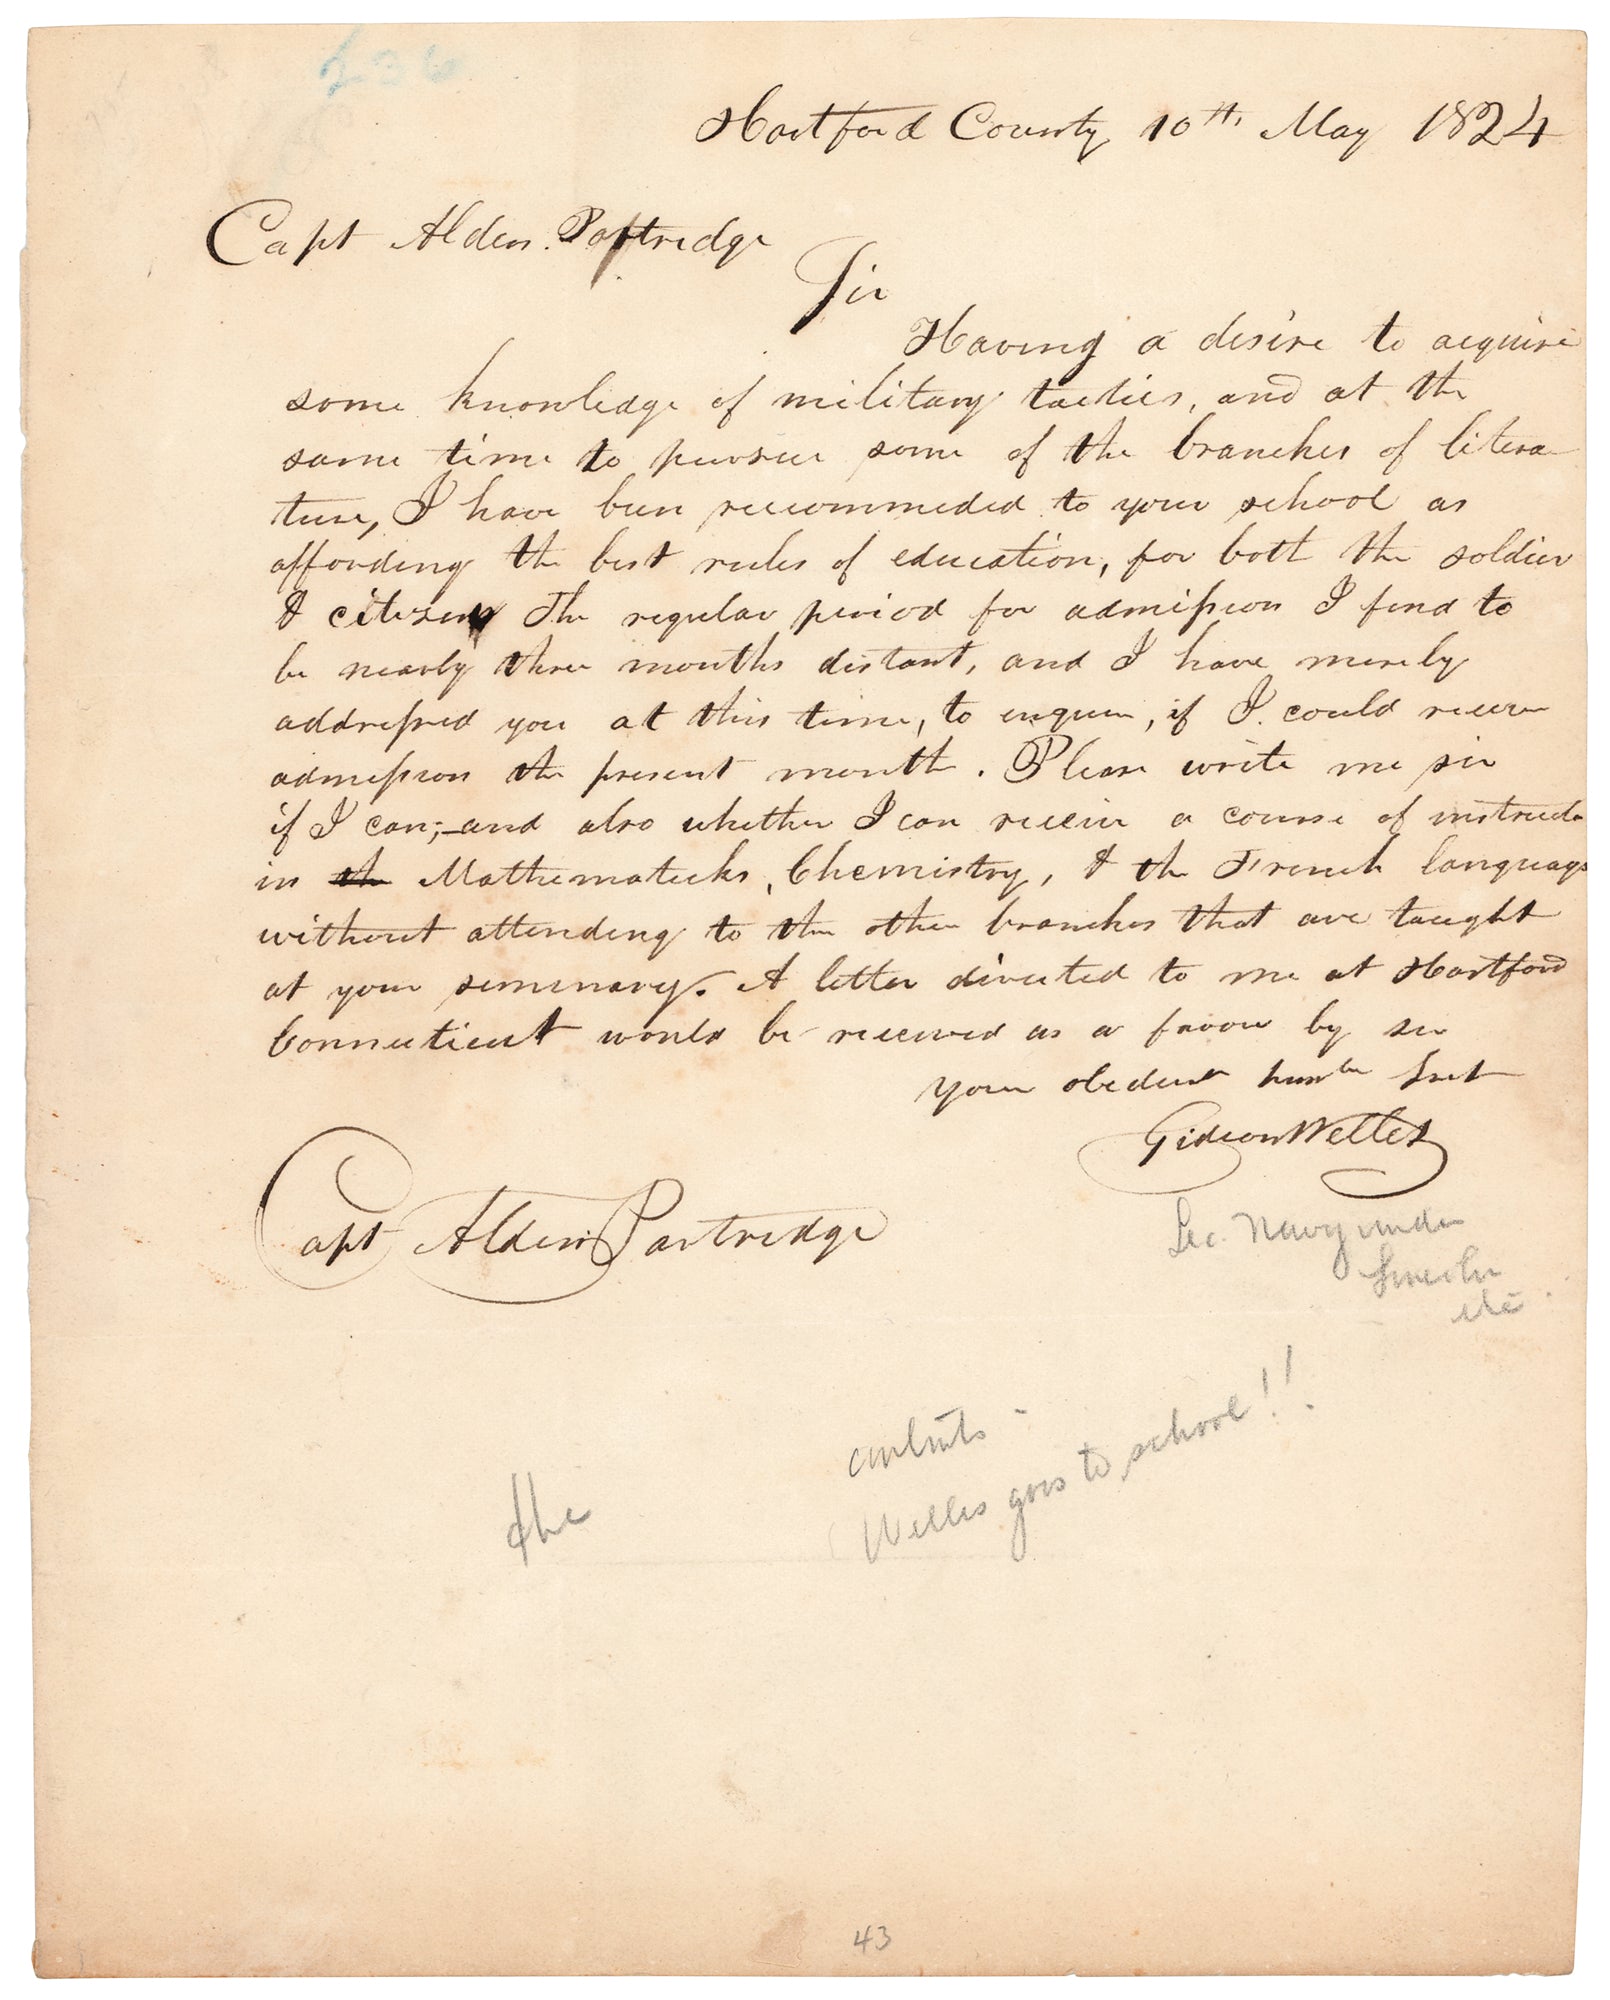 236
Hartford County 10th May 1824
Capt Alden Partridge
Sir
Having a desire to acquire
some knowledge of military tactics, and at the
same time to pursue some of the branches of litera
ture, I have been recommeded to your school as
affording the best rules of education, for both the soldier
& citizen The regular period for admission I find to
be nearly three months distant, and I have merely
addressed you at this time, to enquire, if I could receive
admission the present month. Please write me sir
if I can; and also whether I can receive a course of instructi
in th Mathematicks, Chemistry, & the French language
without attending to the other branches that are taught
at your seminary. A letter directed to me at Hartford
Connecticut would be received as a favour by sir
your obedient humble Svt
Gideon Welles
Capt Alden Partridge
Sec. Navy under
Lincoln
etc
contents -
the
Welles goes to school!!
43